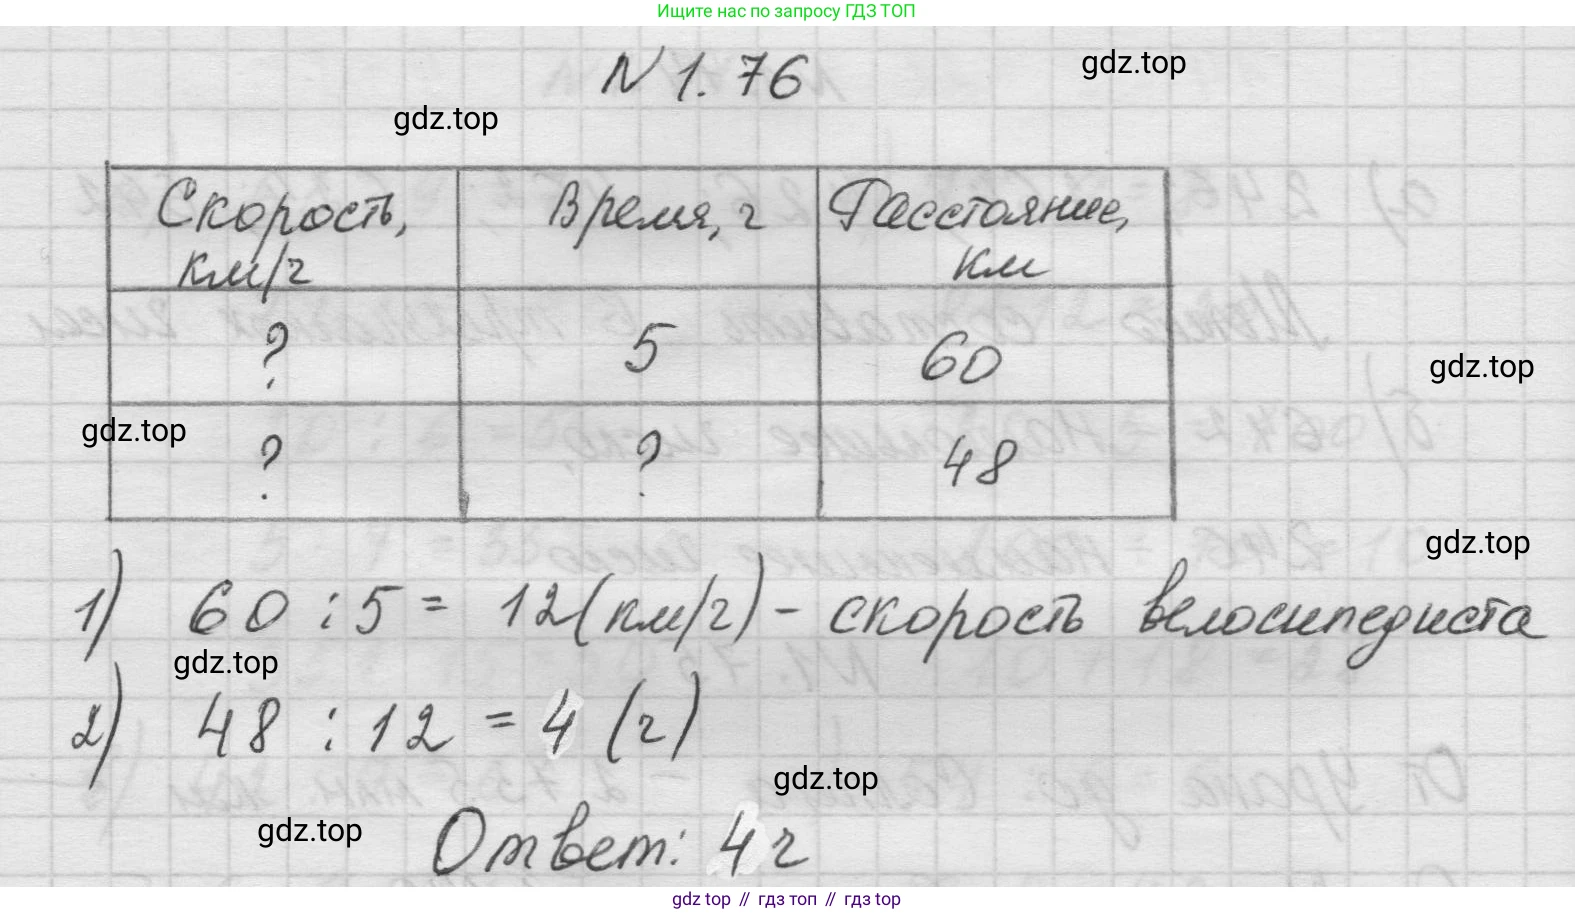 Ищите нас по запросу ГДЗ ТОП
N 1.76
gdz.top
gdz.top
Скорость, км/ч
Время, ч
Расстояние, км
?
5
60
gdz.top
gdz.top
?
?
48
gdz.top
1) 60 : 5 = 12 (км/ч) - скорость велосипедиста
gdz.top
2) 48 : 12 = 4 (ч)
gdz.top
gdz.top
Ответ: 4 ч
gdz top // гдз топ // гдз top